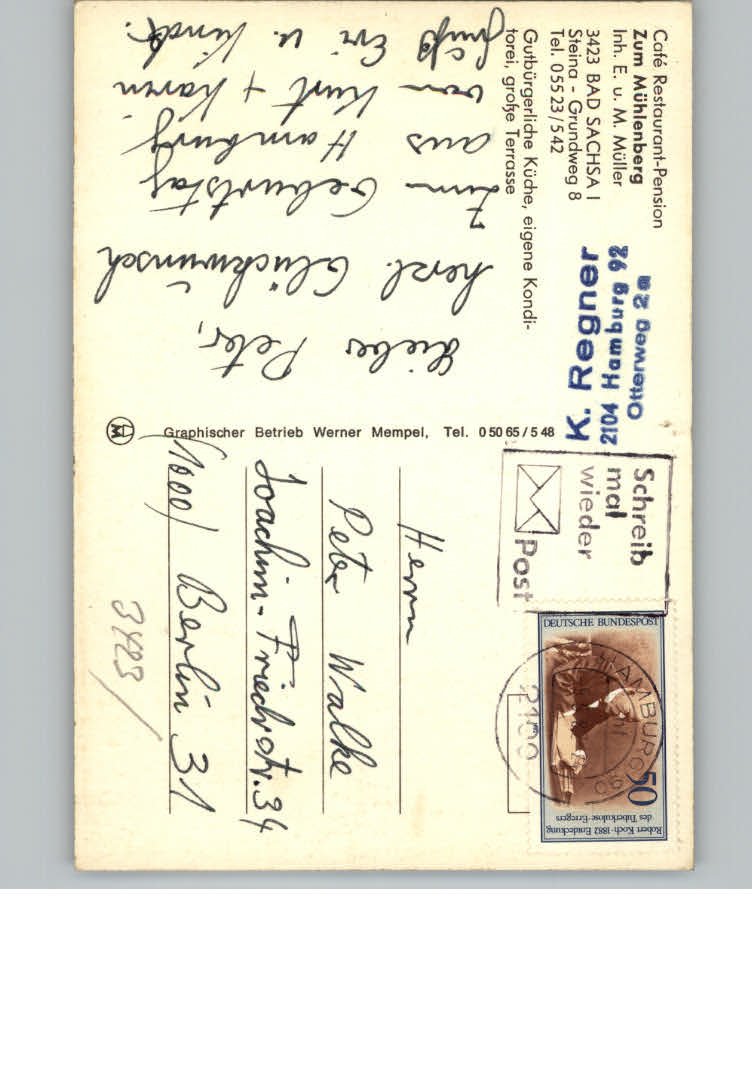 Café Restaurant-Pension
Zum Mühlenberg
Inh. E. u. M. Müller
3423 BAD SACHSA I
Steina - Grundweg 8
Tel. 05523/542
Gutbürgerliche Küche, eigene Kondi-
torei, große Terrasse
K. Regner
2104 Hamburg 92
Otterweg 2a
Lieber Peter,
herzl. Glückwunsch
zum Geburtstag
aus Hamburg
von Kurt + Karen
Grüß Evi u. Kinder.
Graphischer Betrieb Werner Mempel, Tel. 05065/548
M
Schreib
mal
wieder
Post
DEUTSCHE BUNDESPOST
50
Robert Koch·1882 Entdeckung
des Tuberkulose-Erregers
HAMBURG 90
2100
Herrn
Peter Walke
Joachim-Friedrstr. 34
1000/ Berlin 31
3423/